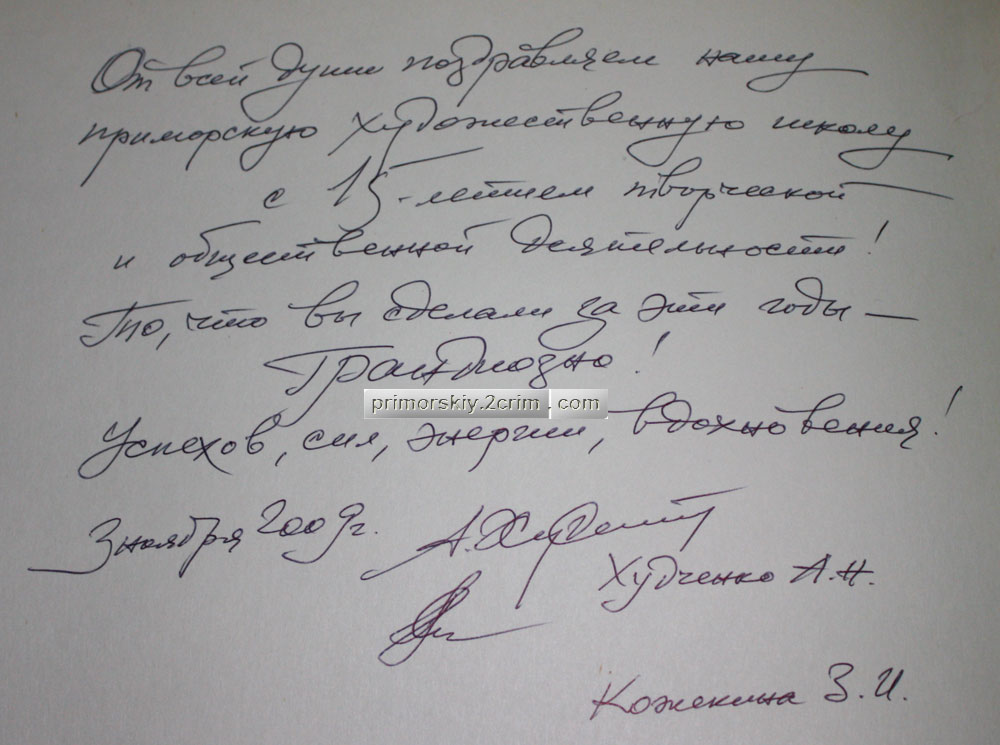 От всей души поздравляем нашу
приморскую художественную школу
с 15-летием творческой
и общественной деятельности!
То, что вы сделали за эти годы —
Грандиозно!
primorskiy.2crim.com
Успехов, сил, энергии, вдохновения!
3 ноября 2009г.
Худченко А.Н.
Кожекина З.И.